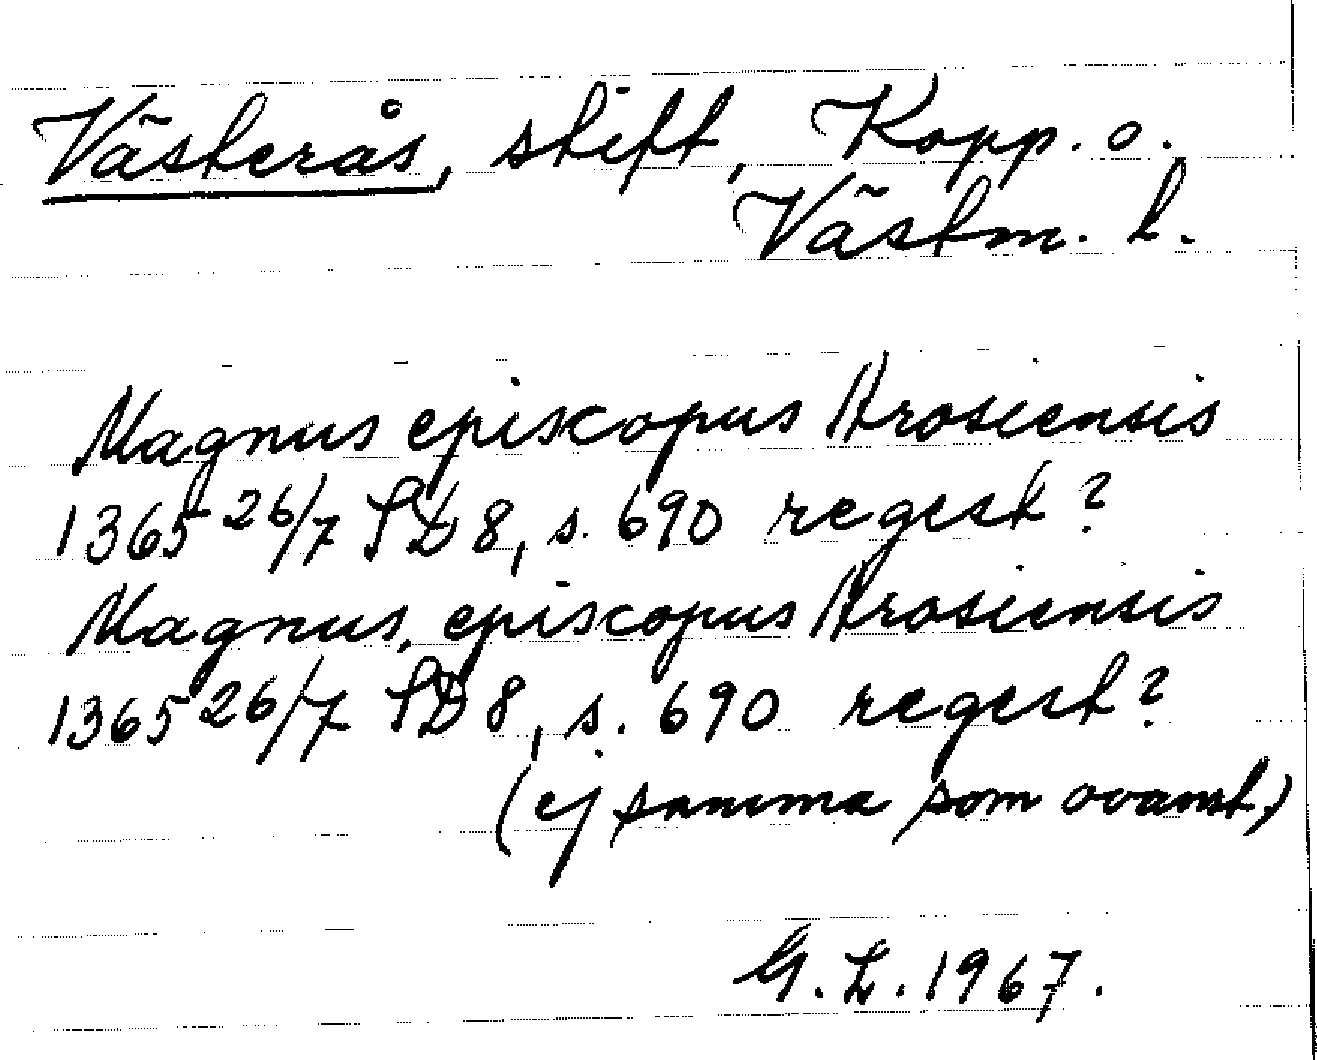 Västerås, stift, Kopp. o.
Västm. l.
Magnus episcopus Arosiensis
1365 26/7 SD 8, s. 690 regest?
Magnus, episcopus Arosiensis
1365 26/7 SD 8, s. 690 regest?
(ej samma som ovanst.)
G. L. 1967.